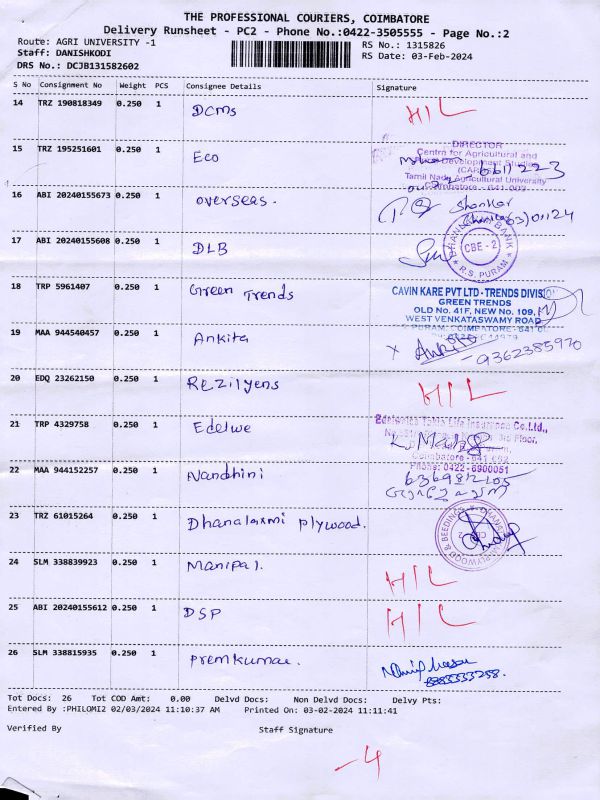 THE PROFESSIONAL COURIERS, COIMBATORE
Delivery Runsheet - PC2 - Phone No.:0422-3505555 - Page No.:2
Route: AGRI UNIVERSITY -1
RS No.: 1315826
Staff: DANISHKODI
RS Date: 03-Feb-2024
DRS No.: DCJB131582602
S No Consignment No Weight PCS Consignee Details Signature
14 TRZ 190818349 0.250 1 DCMS HIL
15 TRZ 195251601 0.250 1 Eco
DIRECTOR
Centre for Agricultural and
Development Studies
Tamil Nadu Agricultural University
Coimbatore - 641 003
16 ABI 20240155673 0.250 1 overseas. Shankar
17 ABI 20240155608 0.250 1 DLB
DHANALAXMI BANK
CBE - 2
R.S. PURAM
18 TRP 5961407 0.250 1 Green Trends
CAVIN KARE PVT LTD - TRENDS DIVISION
GREEN TRENDS
OLD No. 41F, NEW No. 109,
WEST VENKATASWAMY ROAD
19 MAA 944540457 0.250 1 Ankita
x Ankita
9362385970
20 EDQ 23262150 0.250 1 Rezilyens HIL
21 TRP 4329758 0.250 1 Edelwe
Edelweiss Tokio Life Insurance Co.Ltd.,
3rd Floor,
Coimbatore - 641 652
Phone: 0422-6900051
22 MAA 944152257 0.250 1 Nandhini
6369812105
23 TRZ 61015264 0.250 1 Dhanalaxmi plywood.
24 SLM 338839923 0.250 1 Manipal. HIL
25 ABI 20240155612 0.250 1 DSP HIL
26 SLM 338815935 0.250 1 premkumar.
Tot Docs: 26 Tot COD Amt: 0.00 Delvd Docs: Non Delvd Docs: Delvy Pts:
Entered By :PHILOMI2 02/03/2024 11:10:37 AM Printed On: 03-02-2024 11:11:41
Verified By Staff Signature
-4